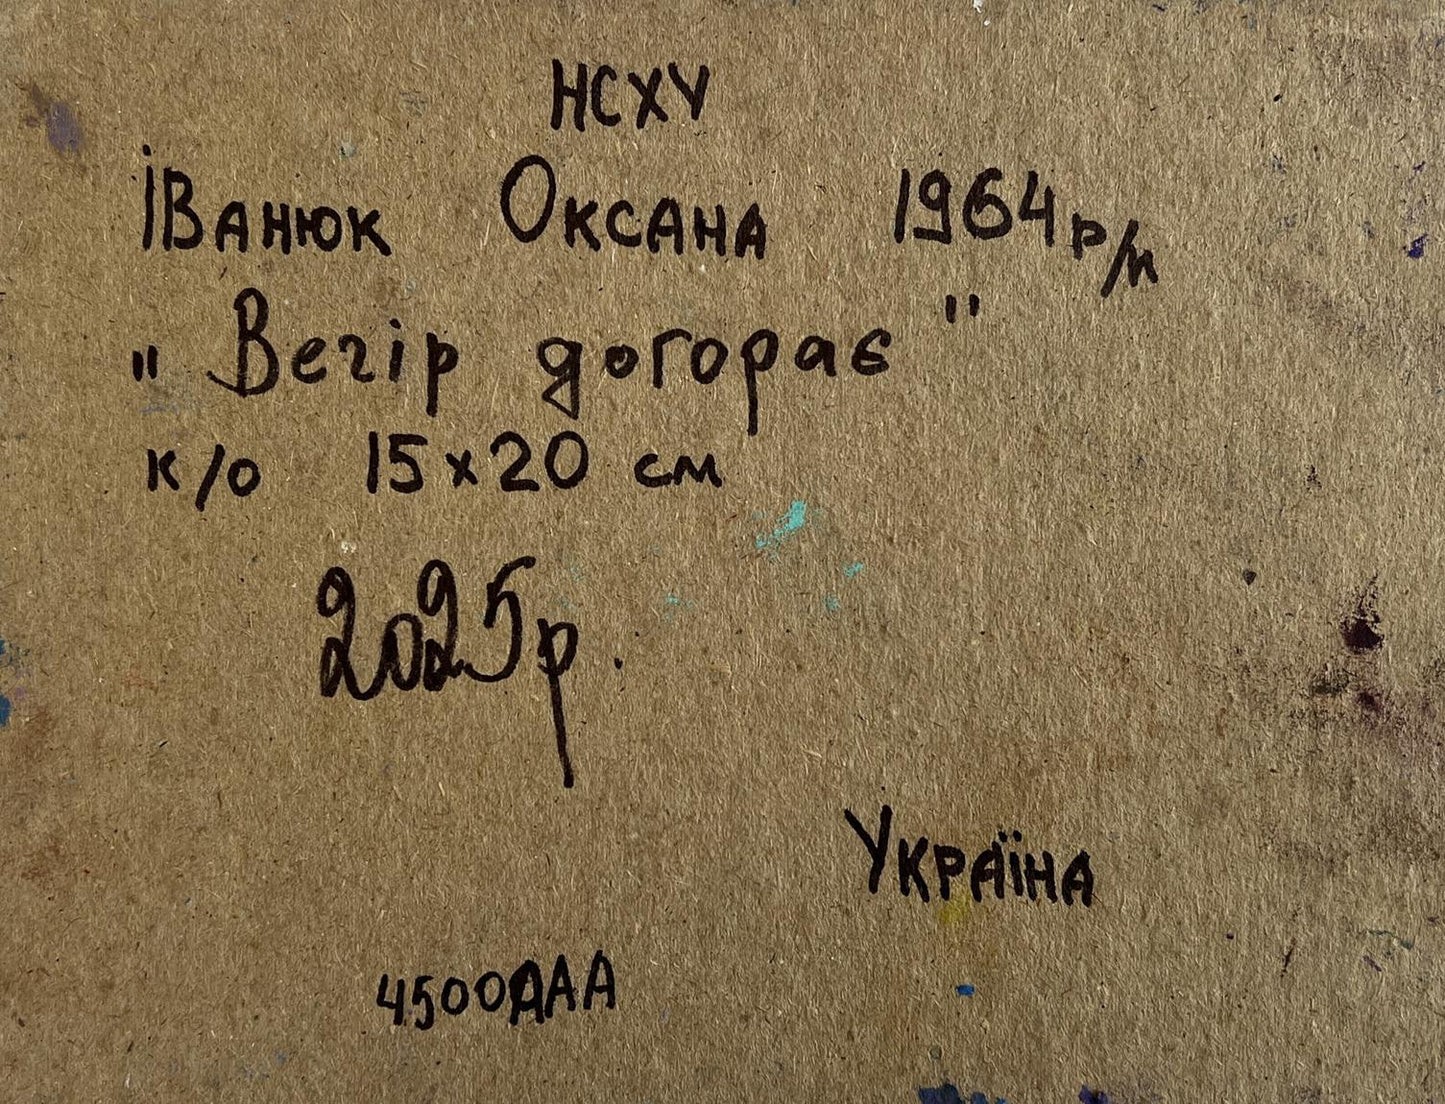 НСХУ
Іванюк Оксана 1964 р/н
„ Вечір догорає "
к/о 15х20 см
2025р.
Україна
4500ААА